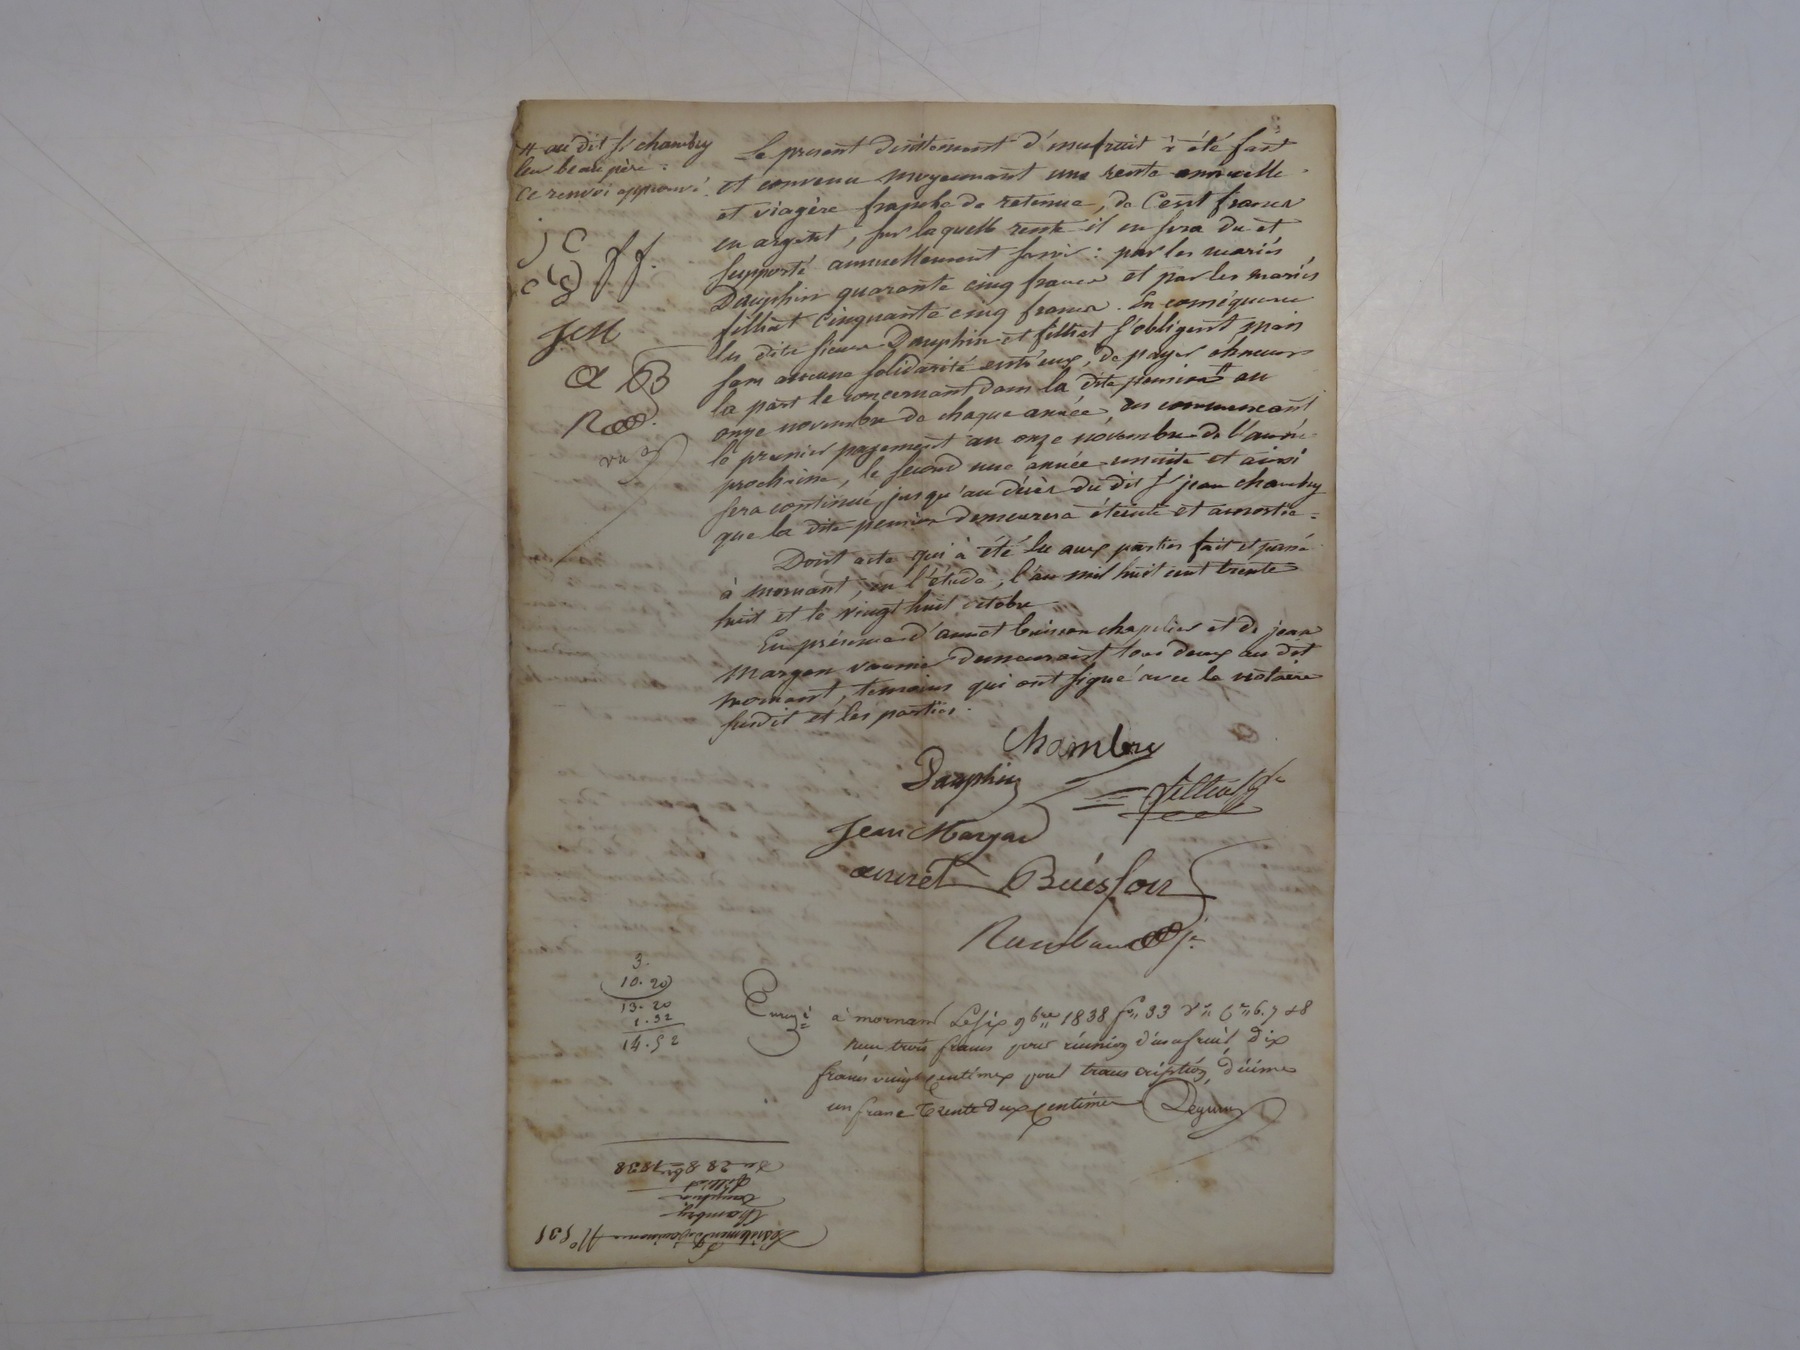 # au dit S. chambry
leur beau père.
Ce renvoi approuvé.
J C
C B ff.
JcM
a B
R
Le present désistement d'usufruit à été fait
et convenu moyennant une rente annuelle
et viagère franche de retenue, de Cent francs
en argent, sur laquelle rente il en sera du et
supporté annuellement savoir: par les mariés
Dauphin quarante cinq francs et par les mariés
filliat Cinquante cinq francs. En conséquence
les dits sieurs Dauphin et filliat s'obligent mais
sans aucune solidarité entr'eux, de payer chacun
la part le concernant dans la dite pension # au
onze novembre de chaque année, en commencant
le premier payement au onze novembre de l'année
prochaine, le second une année ensuite et ainsi
sera continué jusqu'au décès du dit S. jean chambry
que la dite pension demeurera éteinte et amortie =
Dont acte qui à été lu aux parties fait et passé
à mornant, en l'étude, l'an mil huit cent trente
huit et le vingt huit octobre
En présence d'annet buisson chapelier et de jean
Margon demeurant tous deux au dit
mornant, temoins qui ont signé avec le notaire
susdit et les parties.
Chambry
Dauphin
filliat
Jean Margon
annet Buisson
Rambaud
3.
10.20
13.20
1.32
14.52
Enregé à mornant Le six 9bre 1838 fo 33 Vo Ces 6.7 & 8
reçu trois francs pour réunion d'usufruit, dix
francs vingt centimes pour transcription, décime
un franc trente deux centimes
Nº 531
Chambry
Dauphin
filliat
Du 28 8bre 1838